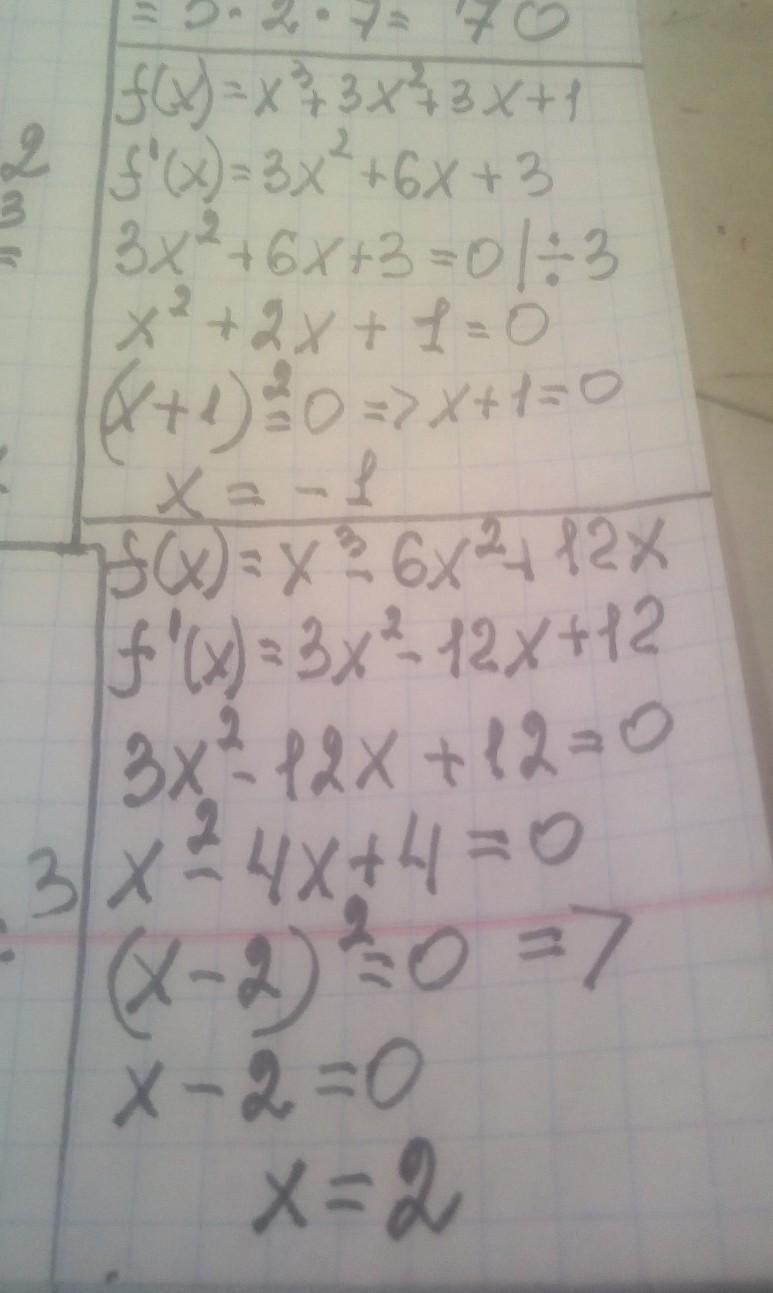 = 5 · 2 · 7 = 70
f(x) = x³ + 3x² + 3x + 1
f'(x) = 3x² + 6x + 3
3x² + 6x + 3 = 0 | ÷ 3
x² + 2x + 1 = 0
(x + 1)² = 0 => x + 1 = 0
x = - 1
f(x) = x³ - 6x² + 12x
f'(x) = 3x² - 12x + 12
3x² - 12x + 12 = 0
x² - 4x + 4 = 0
(x - 2)² = 0 =>
x - 2 = 0
x = 2
2
3
=
3